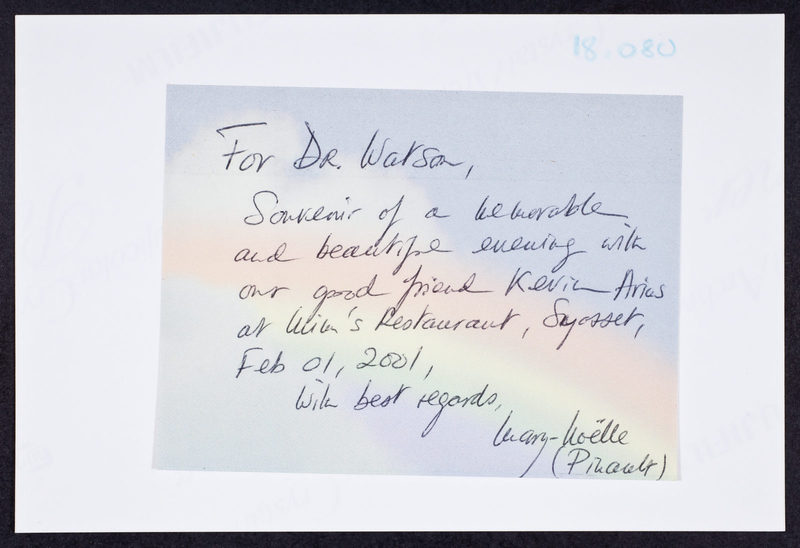 18.080
For Dr. Watson,
Souvenir of a memorable
and beautiful evening with
our good friend Kevin Arias
at Mim's Restaurant, Syosset,
Feb 01, 2001,
With best regards,
Mary-Noëlle
(Pinault)